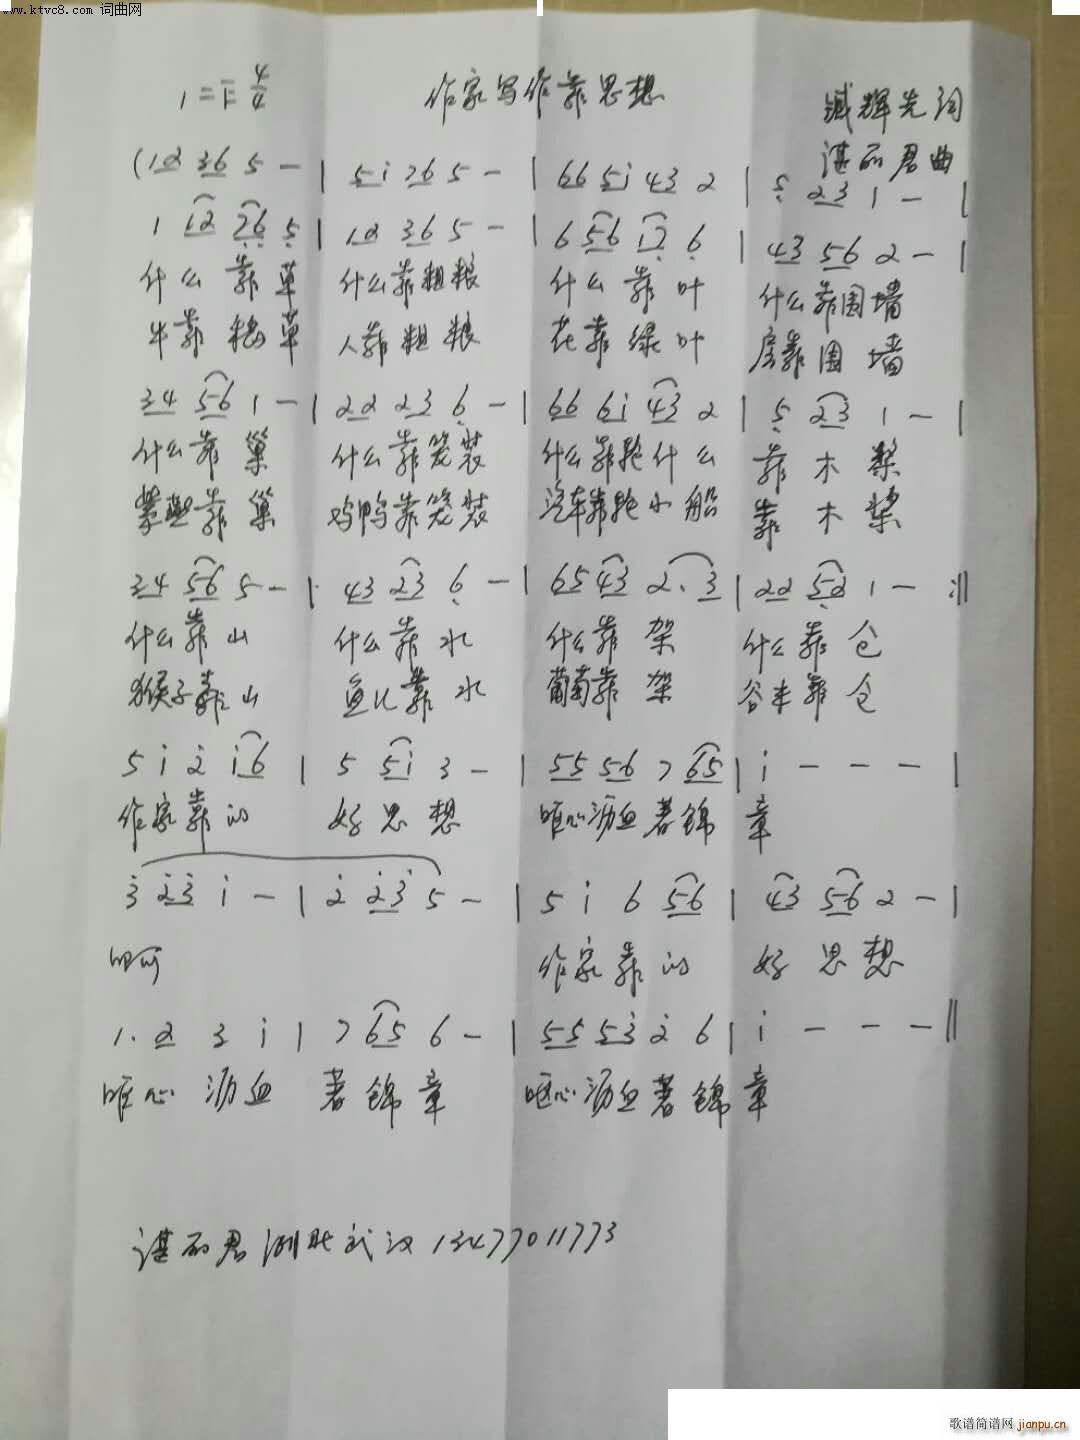 www.ktvc8.com 词曲网
1=F 4/4 作家写作靠思想 臧辉先词
谌丽君曲
(12 36 5 — | 5i 76 5 — | 66 5i 43 2 | 5 23 1 — |
1 12 76 5 | 12 36 5 — | 6 56 17 6 | 43 56 2 — |
什么靠草 什么靠粗粮 什么靠叶 什么靠围墙
牛靠粮草 人靠粗粮 花靠绿叶 房靠围墙
34 56 1 — | 22 23 6 — | 66 6i 43 2 | 5 23 1 — |
什么靠巢 什么靠笼装 什么靠轮什么 靠木桨
靠巢 鸡鸭靠笼装 汽车靠轮小船 靠木桨
34 56 5 — | 43 23 6 — | 65 43 2. 3 | 22 52 1 — :||
什么靠山 什么靠水 什么靠架 什么靠仓
猴子靠山 鱼儿靠水 葡萄靠架 谷丰靠仓
5 i 2 i6 | 5 5i 3 — | 55 56 7 65 | i — — — |
作家靠的 好思想 呕心沥血著锦章
3 23 i — | 2 23 5 — | 5 i 6 56 | 43 56 2 — |
啊 作家靠的 好思想
1. 2 3 i | 7 65 6 — | 55 53 2 6 | i — — — ||
呕心沥血 著锦章 呕心沥血著锦章
谌丽君 湖北武汉 13477011773
歌谱简谱网 jianpu.cn